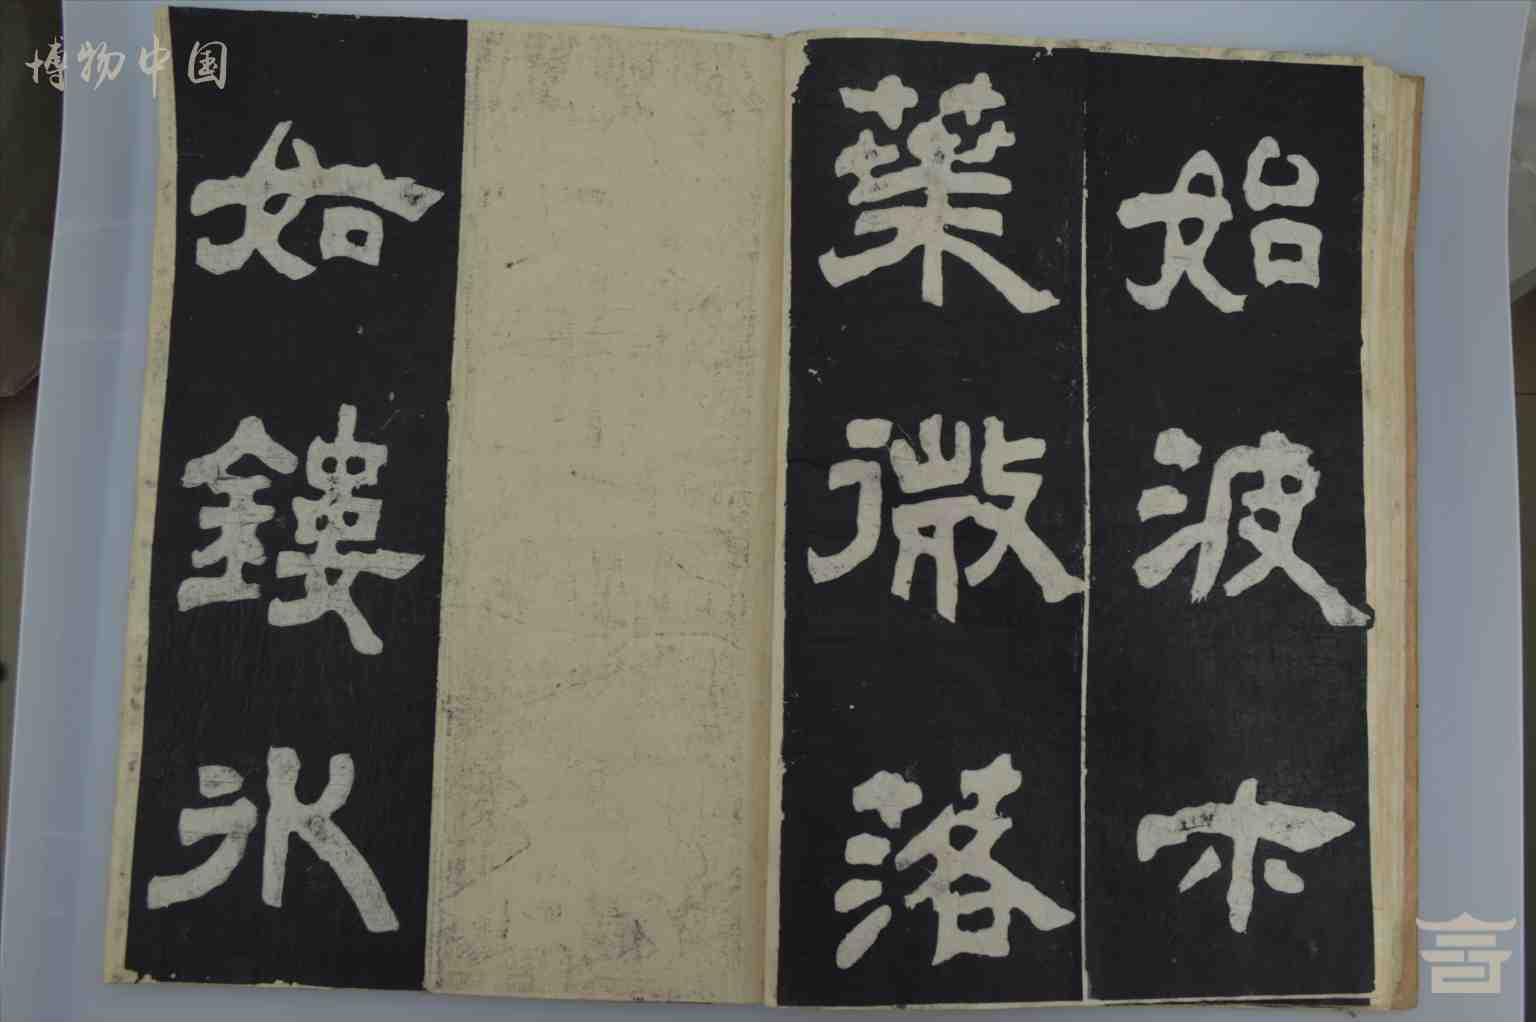 博物中国
始波木
葉微落
如鏤冰